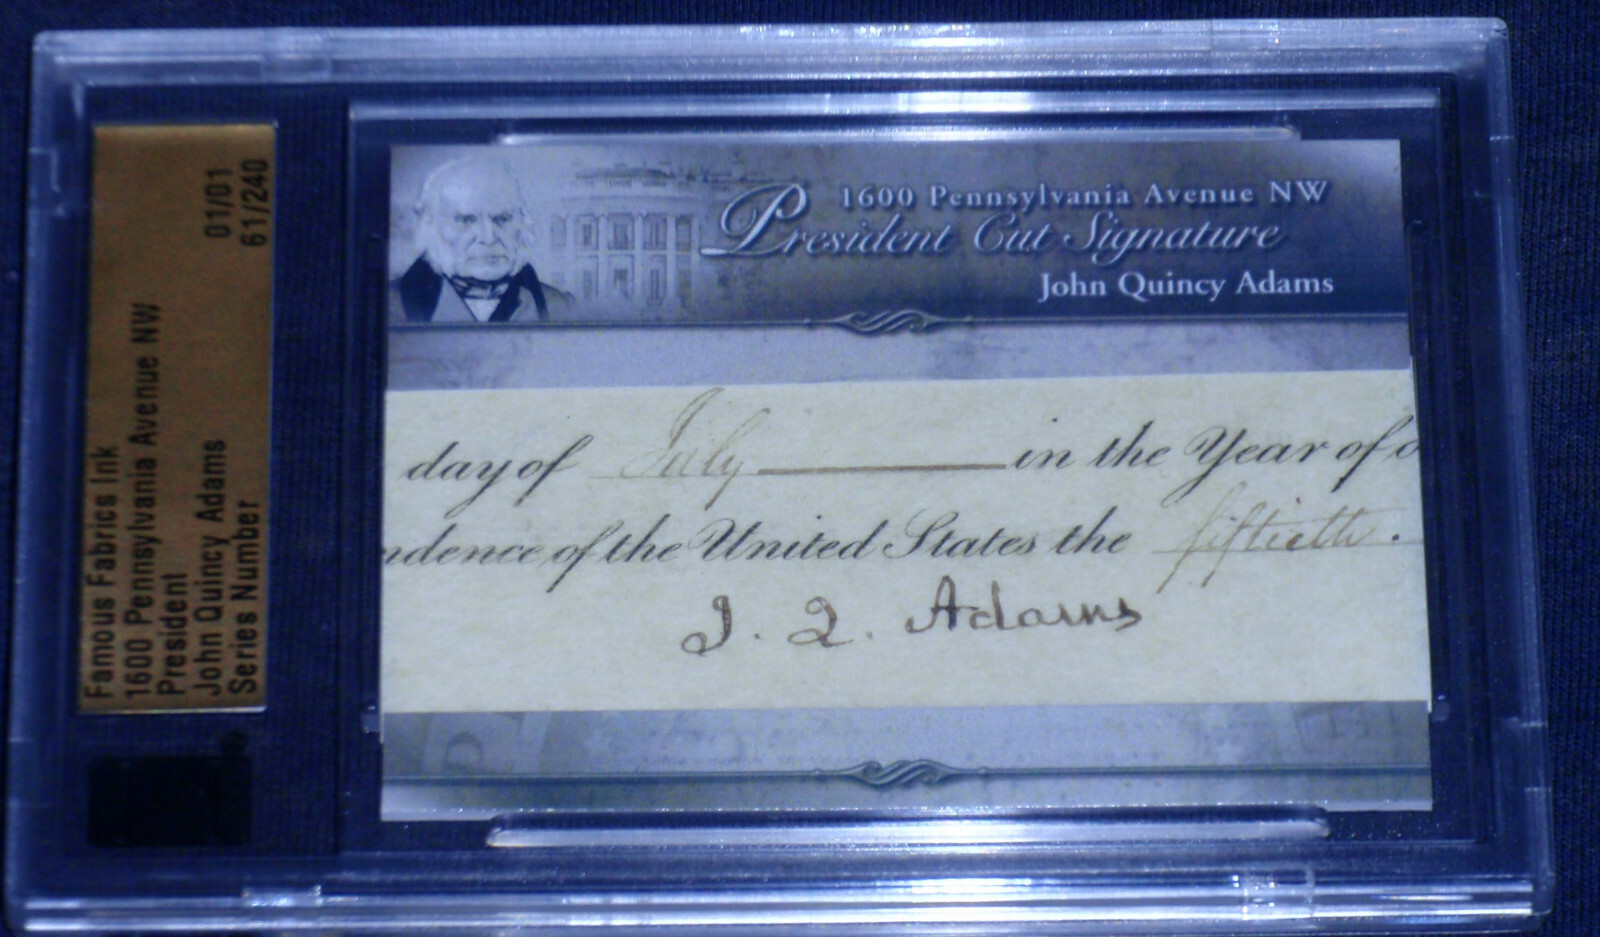 Famous Fabrics Ink
1600 Pennsylvania Avenue NW
President
John Quincy Adams 01/01
Series Number 61/240
1600 Pennsylvania Avenue NW
President Cut Signature
John Quincy Adams
day of July in the Year of o
ndence of the United States the fiftieth.
J. Q. Adams